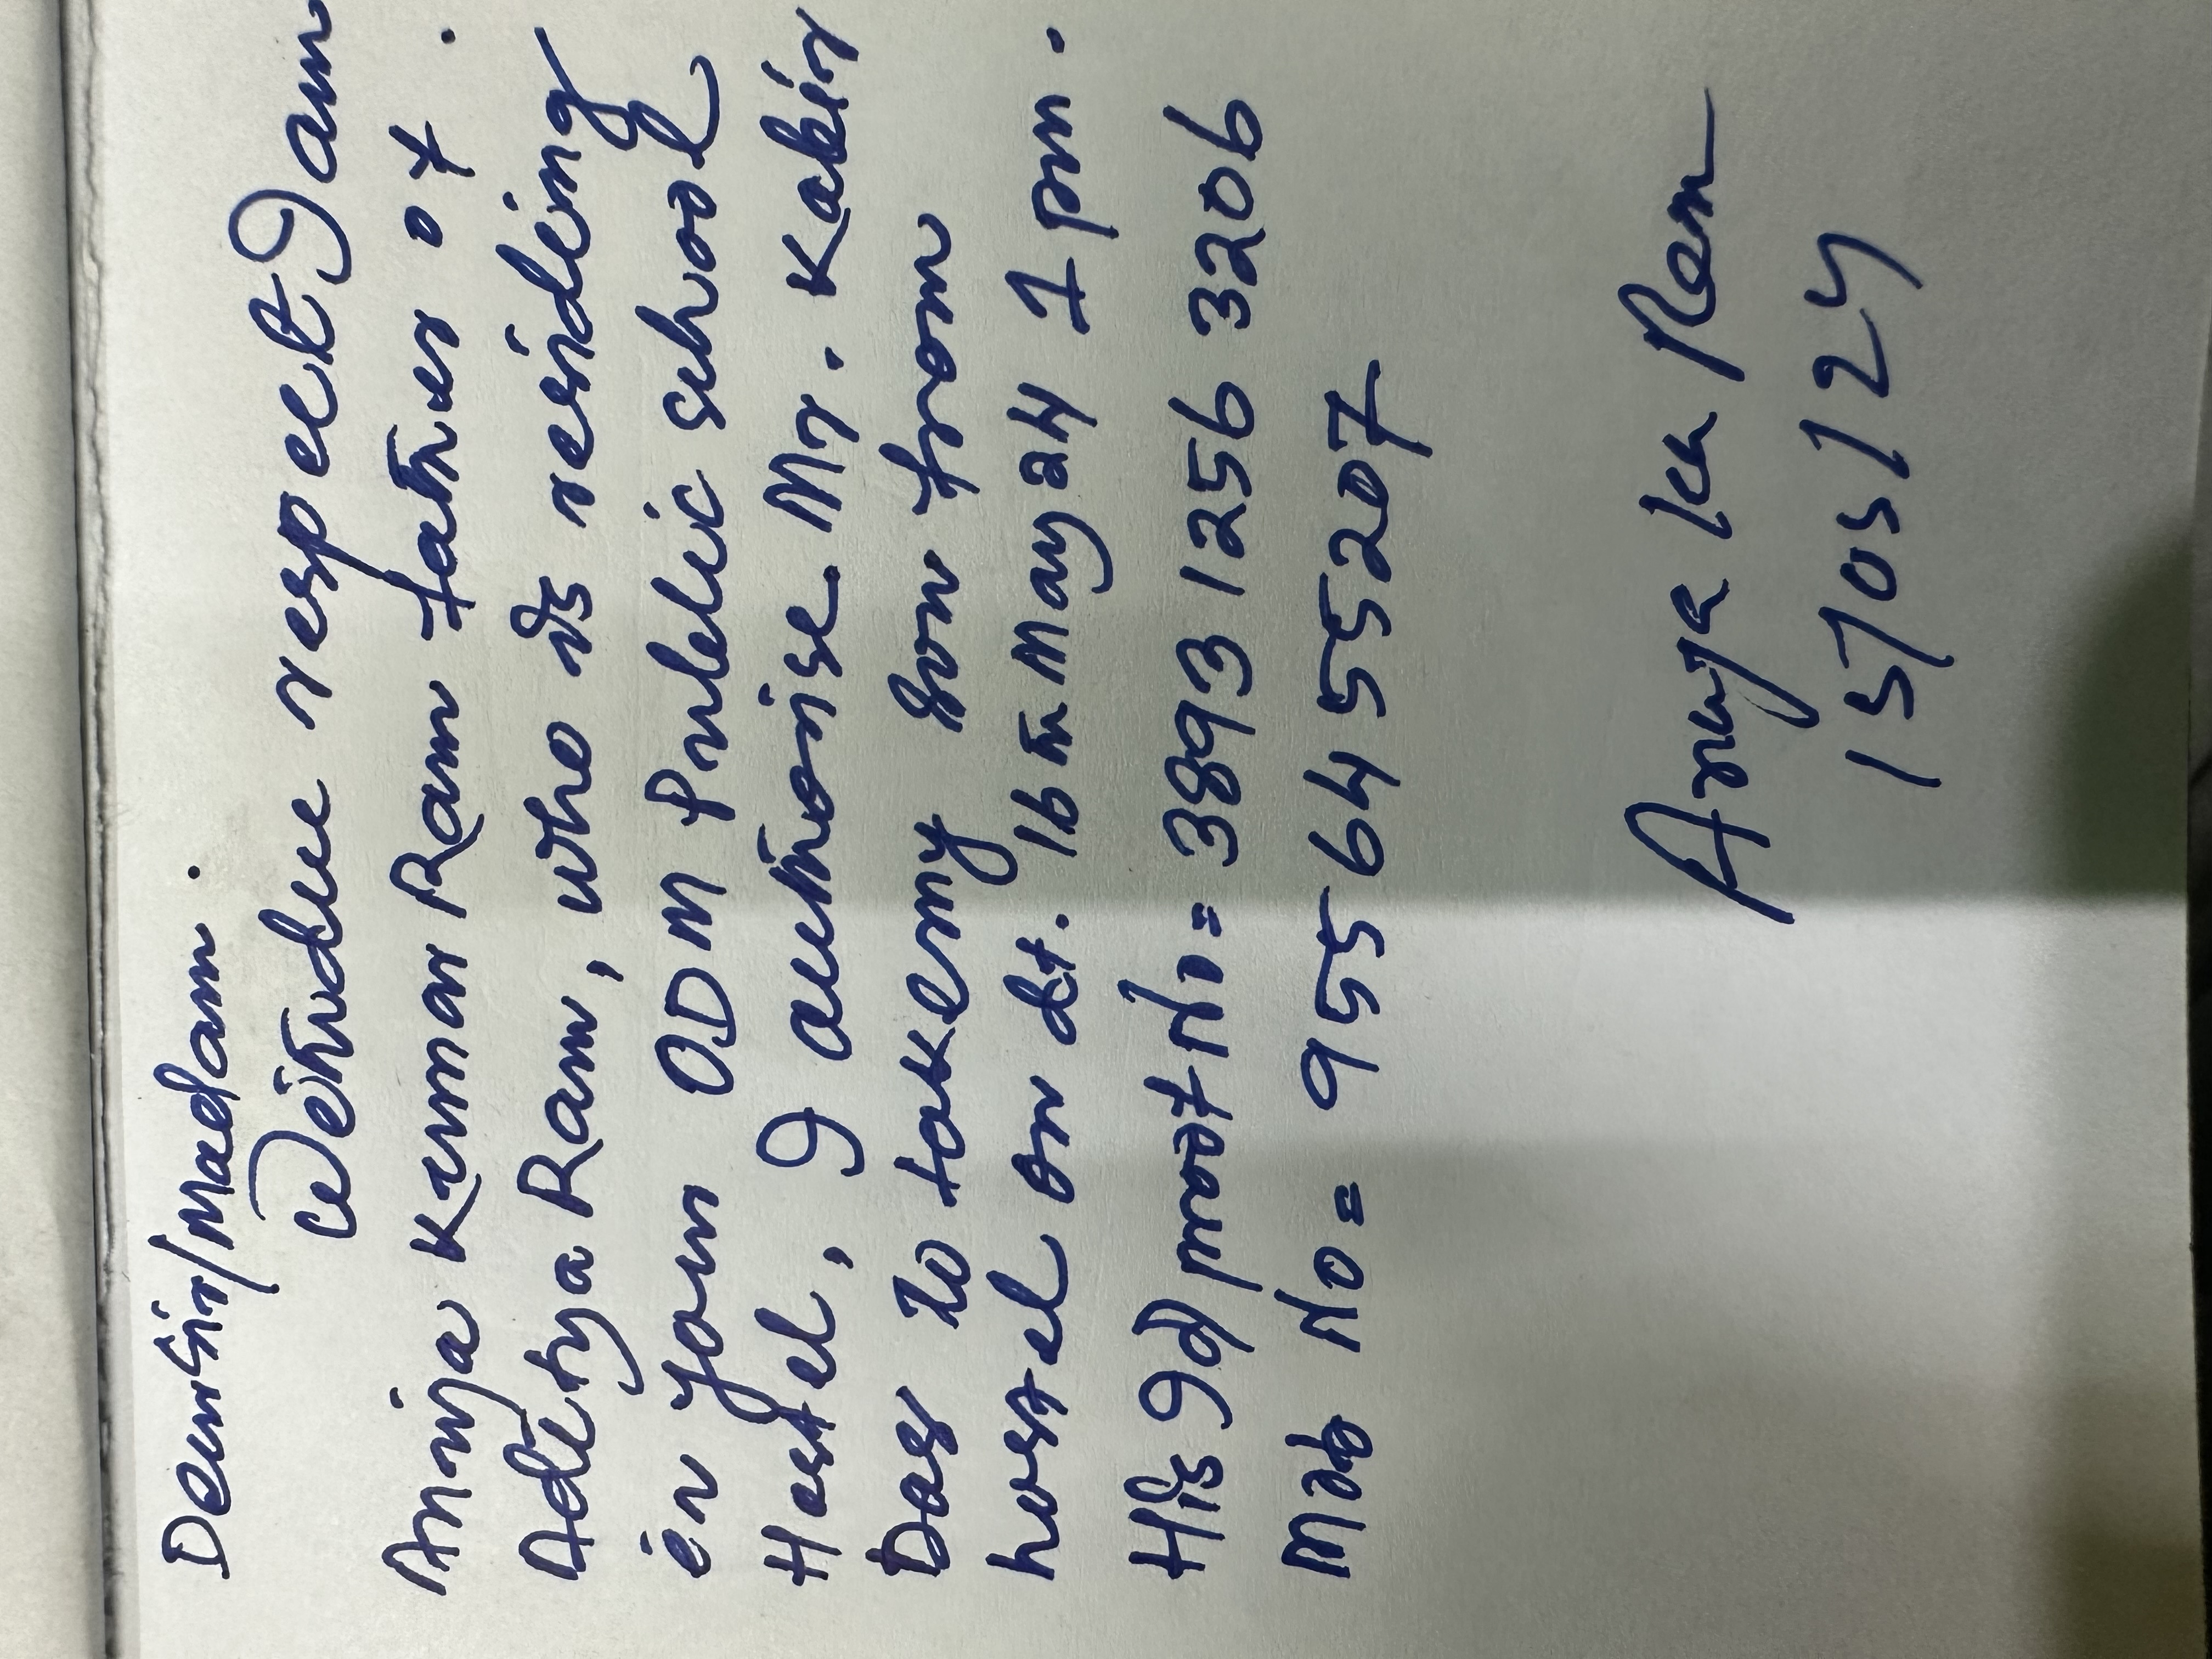 Dear Sir/Madam.
With due respect I am
Anuja Kumar Ram father of.
Aditya Ram, who is residing
in your ODM Public school
Hostel, I authorise Mr. Kabir
Das to takeing Son from
hostel on dt. 16th May 24 7 pm.
His Id proof No = 3893 1256 3206
Mob No = 9556455207
Anuja Ku Ram
15/05/24